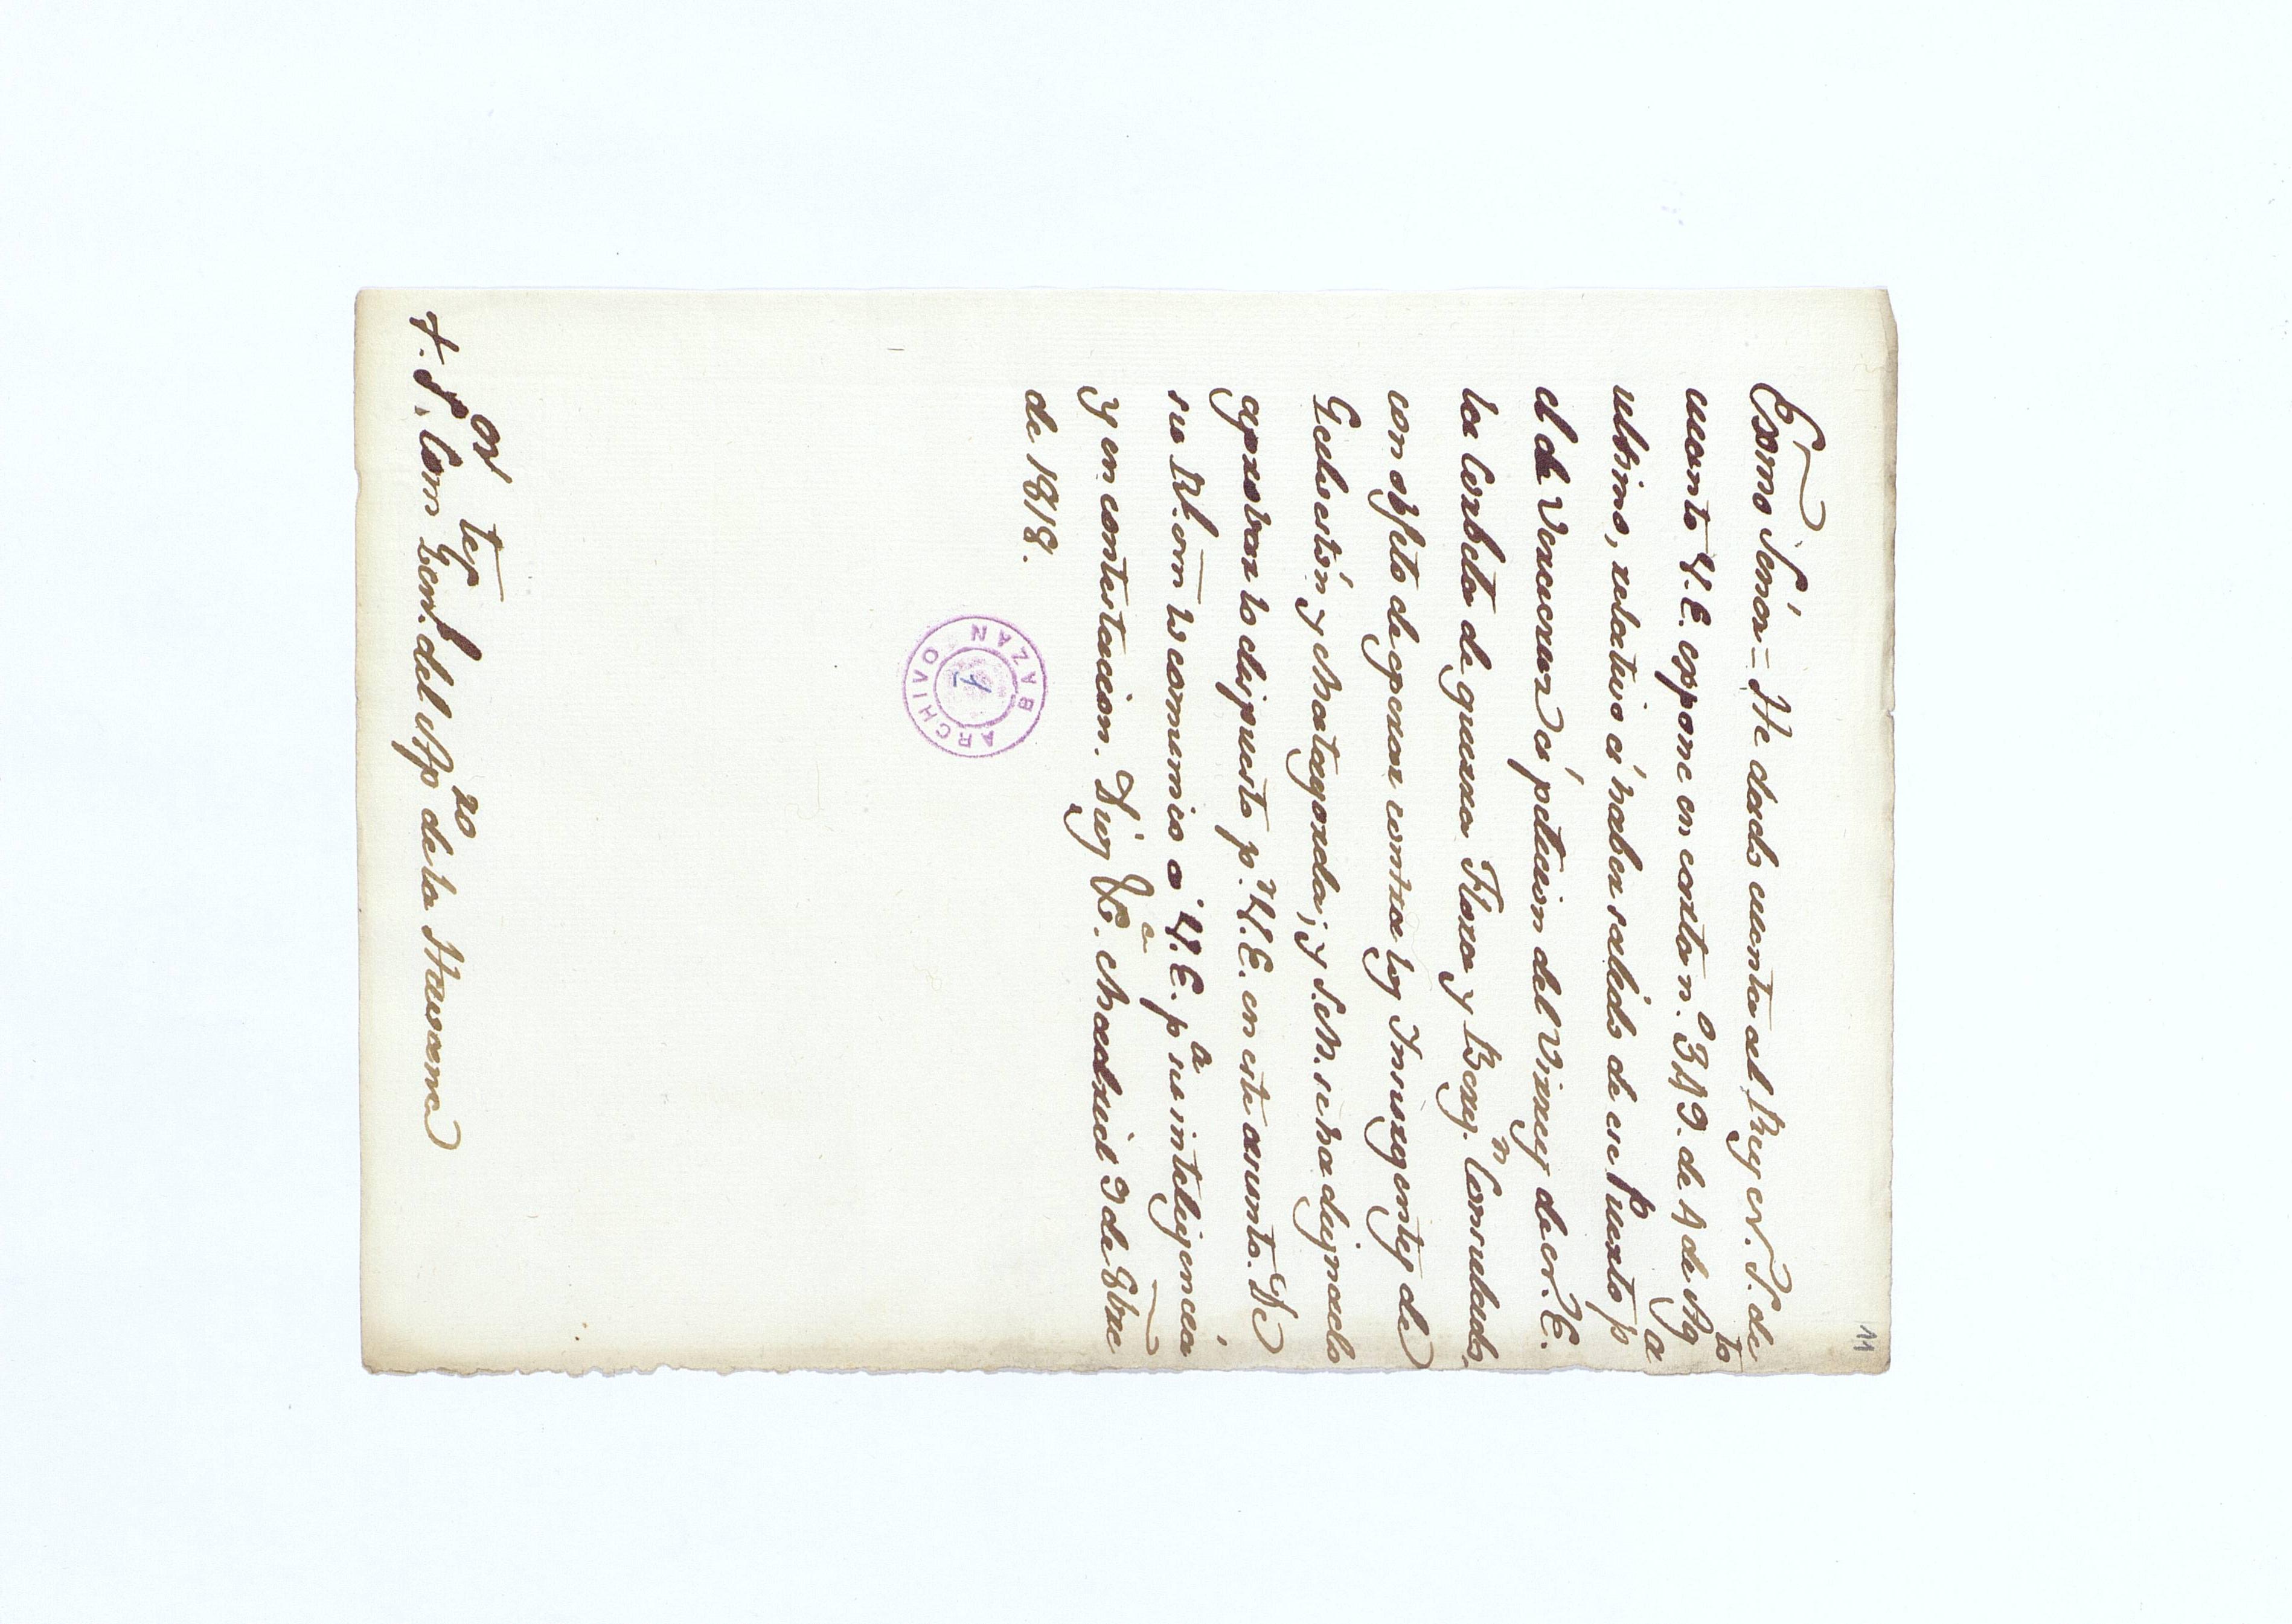 11
Exmo Señor = He dado cuenta al Rey N. S. de
cuanto V. E. expone en carta n.º 349. de 4 de Ag.to
ultimo, relativo á haber salido de ese Puerto p.a
el de Veracruz á peticion del Virrey de N. E.
la Corbeta de guerra Flora y Berg.n Consulado,
con objeto de operar contra los Insurgentes de
Galveston y Matagorda; y S. M. se ha dignado
aprobar lo dispuesto p.r V. E. en este asunto. De
su Rl. orn lo comunico á V. E. p.a su inteligencia
y en contestacion. Dios &c.a Madrid 9 de 8bre
de 1818.
ARCHIVO
BAZAN
1
H. S.or Com.te Genl. del Ap.ro de la Havana